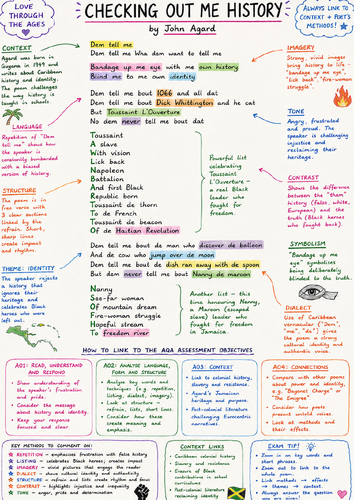 LOVE
THROUGH
THE AGES
CHECKING OUT ME HISTORY
by John Agard
ALWAYS LINK TO
CONTEXT + POET'S
METHODS!
CONTEXT
Agard was born in
Guyana in 1949 and
writes about Caribbean
history and identity.
The poem challenges
the way history is
taught in schools.
LANGUAGE
Repetition of "Dem
tell me" shows how
the speaker is
constantly bombarded
with a biased
version of history.
STRUCTURE
The poem is in
free verse with
3 clear sections
linked by the
refrain. Short,
sharp lines
create impact
and rhythm.
THEME: IDENTITY
The speaker rejects
a history that
ignores their
heritage and
celebrates Black
heroes who were
left out.
Dem tell me
Dem tell me Wha dem want to tell me
Bandage up me eye with me own history
Blind me to me own identity
Dem tell me bout 1066 and all dat
Dem tell me bout Dick Whittington and he cat
But Toussaint L'Ouverture
No dem never tell me bout dat
Toussaint
A slave
With vision
Lick back
Napoleon
Battalion
And first Black
Republic born
Toussaint de thorn
To de French
Toussaint de beacon
Of de Haitian Revolution
Powerful list
celebrating
Toussaint
L'Ouverture –
a real Black
leader who
fought for
freedom.
Dem tell me bout de man who discover de balloon
And de cow who jump over de moon
Dem tell me bout de dish ran away with de spoon
But dem never tell me bout Nanny de maroon
Nanny
See-far woman
Of mountain dream
Fire-woman struggle
Hopeful stream
To freedom river
Another list – this
time honouring Nanny,
a Maroon (escaped
slave) leader who
fought for freedom
in Jamaica.
IMAGERY
Strong, vivid images
bring history to life –
"bandage up me eye",
"lick back", "fire-woman
struggle".
TONE
Angry, frustrated
and proud. The speaker
is challenging
injustice and
reclaiming their
heritage.
CONTRAST
Shows the difference
between the "them"
history (false, white,
European) and the
truth (Black heroes
who fought back).
SYMBOLISM
"Bandage up me eye"
symbolises
being deliberately
blinded to the truth.
DIALECT
Use of Caribbean
vernacular ("Dem",
"me", "de") gives
the poem a strong
cultural identity and
authentic voice.
HOW TO LINK TO THE AQA ASSESSMENT OBJECTIVES
AO1: READ, UNDERSTAND
AND RESPOND
Show understanding of
the speaker's frustration
and pride.
Consider the message
about history and identity.
Keep your response
focused and clear.
AO2: ANALYSE LANGUAGE,
FORM AND STRUCTURE
Analyse key words and
techniques (e.g. repetition,
listing, dialect, imagery).
Look at structure –
refrain, lists, short lines.
Consider how these
create meaning and
emphasis.
AO3: CONTEXT
Link to colonial history,
slavery and resistance.
Agard's Jamaican
heritage and purpose.
Post-colonial literature
challenging Eurocentric
narratives.
AO4: CONNECTIONS
Compare with other poems
about power and identity,
e.g. "Bayonet Charge" or
"The Emigree".
Consider how poets
present untold voices.
Look at methods and
their effects.
KEY METHODS TO COMMENT ON:
REPETITION – emphasises frustration with false history
LISTING – celebrates Black heroes; creates impact
IMAGERY – vivid pictures that engage the reader
DIALECT – shows cultural identity and authenticity
STRUCTURE – refrain and lists create rhythm and focus
CONTRAST – highlights injustice and inequality
TONE – anger, pride and determination
CONTEXT LINKS
Caribbean colonial history
Slavery and resistance
Erasure of Black
contributions in school
curriculums
Post-colonial literature
reclaiming identity
EXAM TIP!
Zoom in on key words
and short phrases.
Zoom out to link to the
whole poem.
Link methods → effects
→ themes → context.
Always answer the question